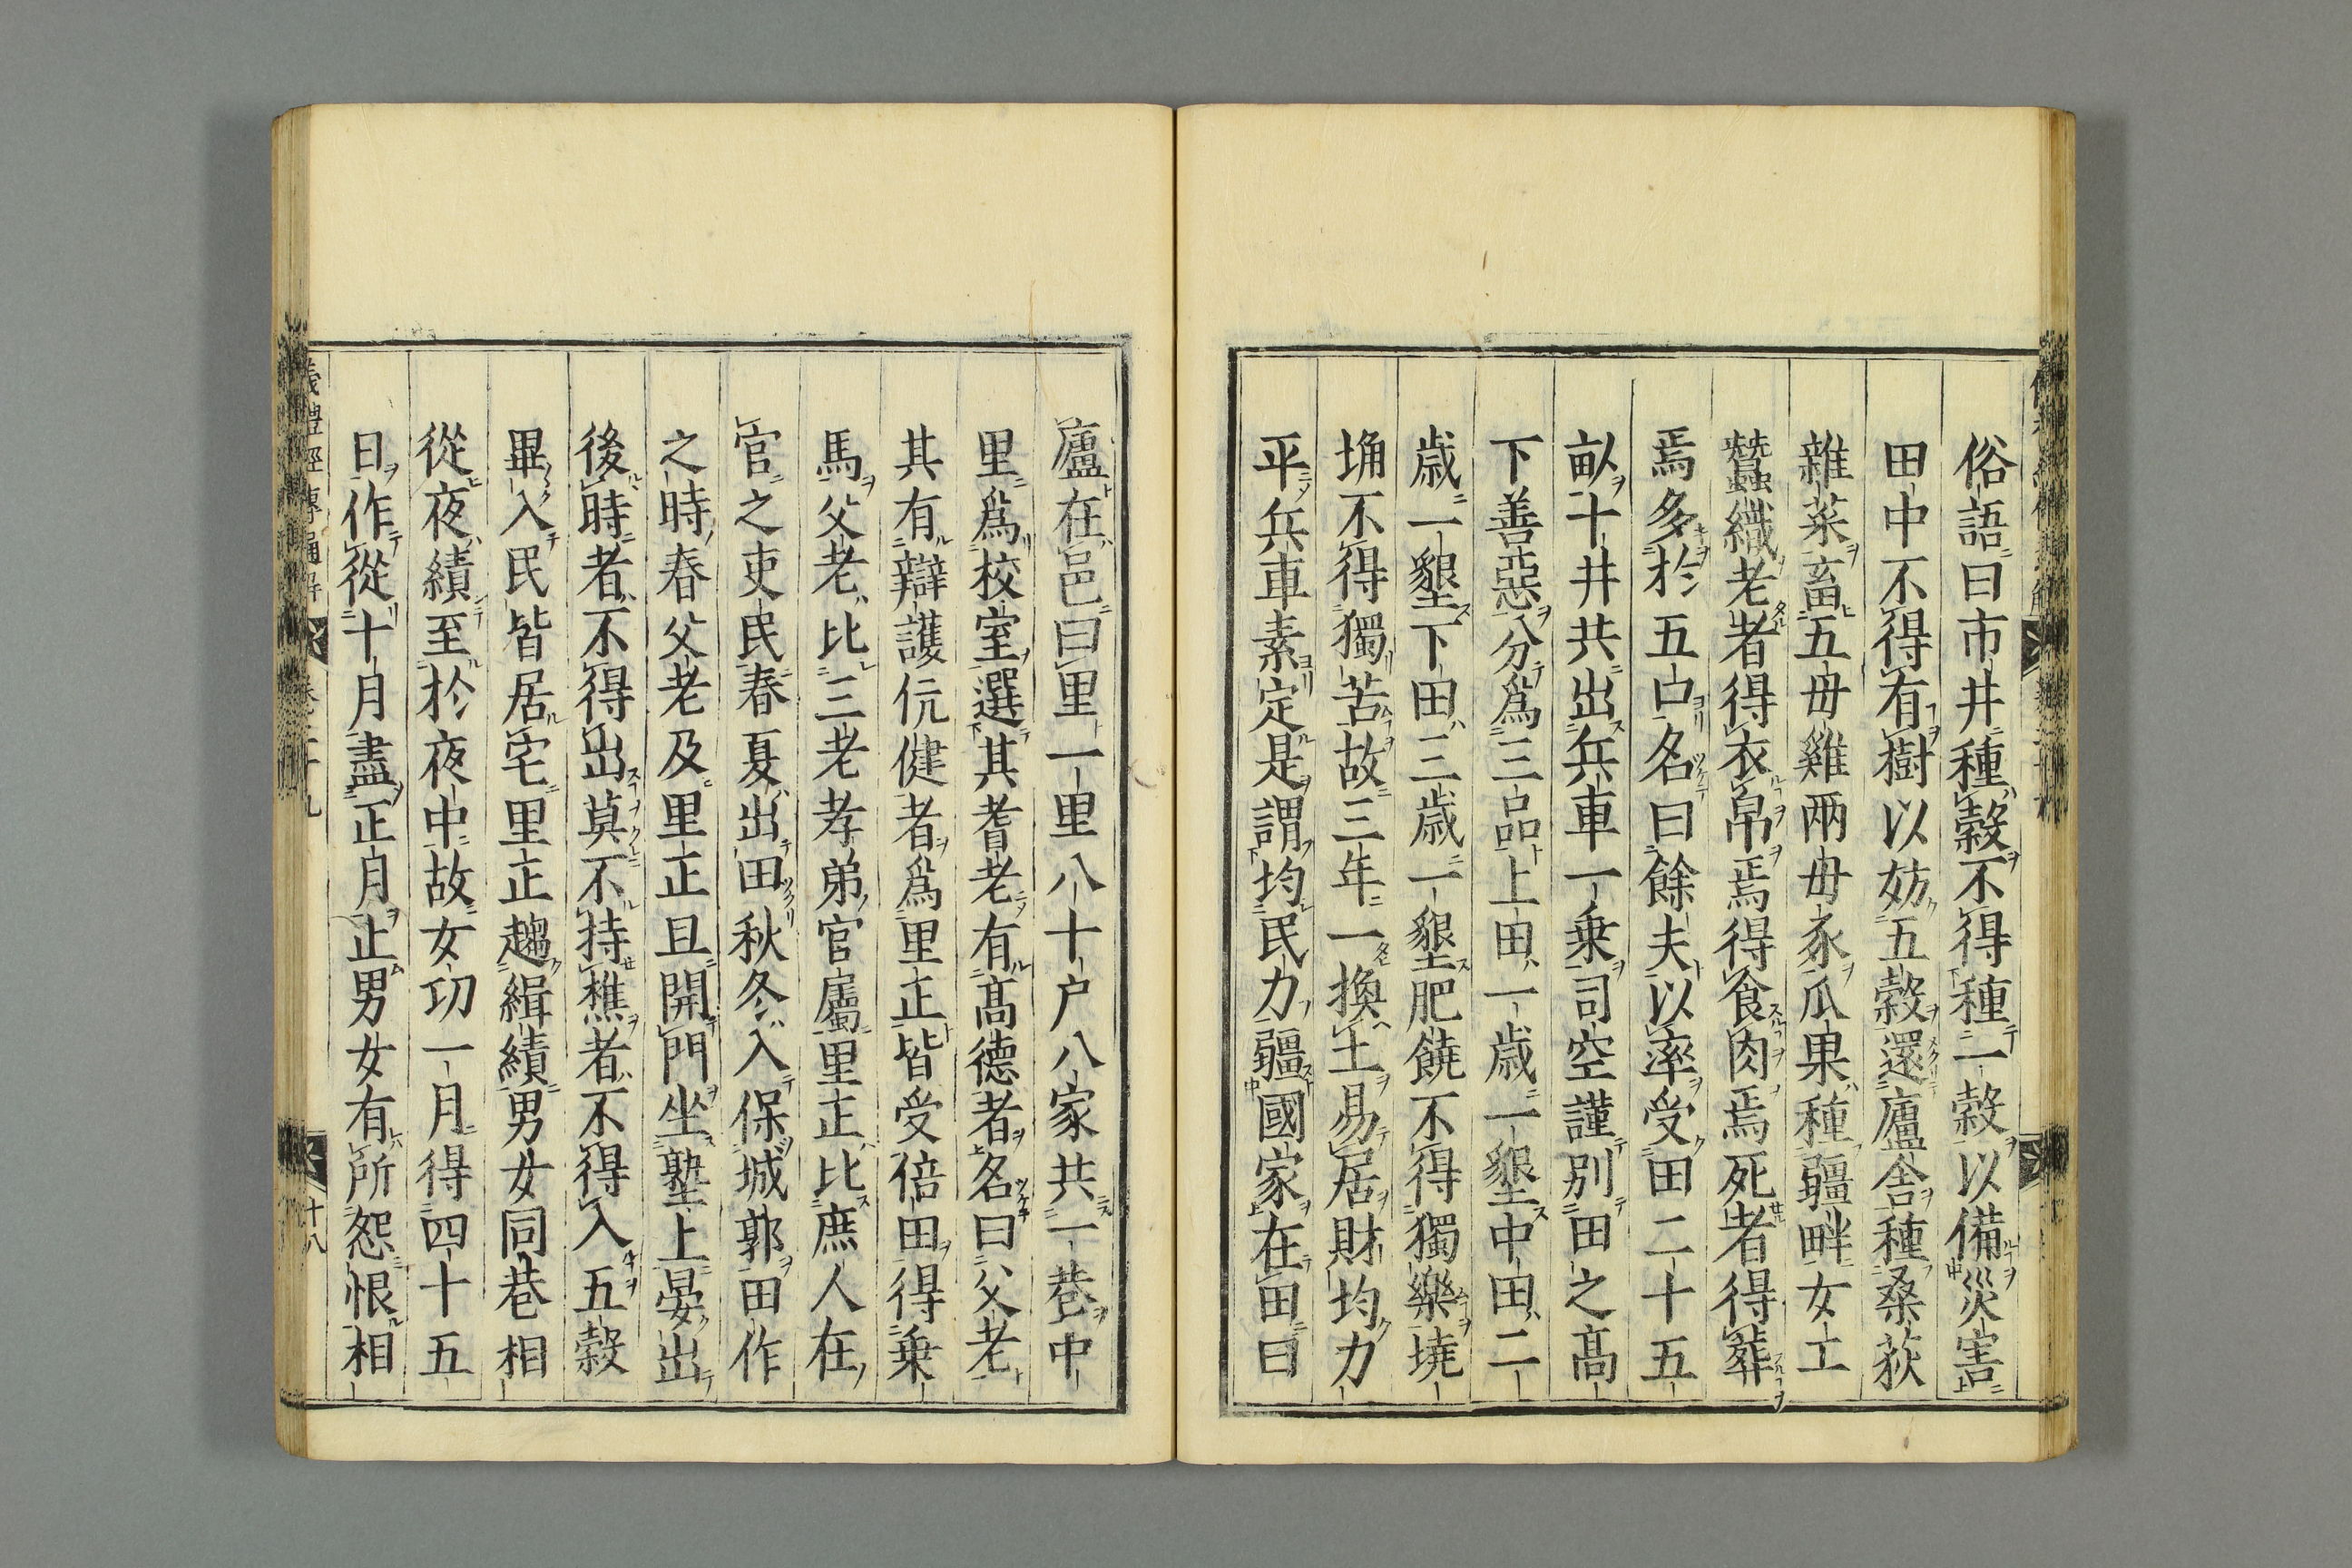 俗語曰市井種穀不得種一穀以備災害
田中不得有樹以妨五穀還廬舎種桑荻
雜菜畜五毋雞兩毋豕瓜果種疆畔女工
蠶織老者得衣帛焉得食肉焉死者得葬
焉多於五口名曰餘夫以率受田二十五
畝十井共出兵車一乗司空謹別田之髙
下善惡分爲三品上田一歳一墾中田二
歳一墾下田三歳一墾肥饒不得獨樂墝
埆不得獨苦故三年一換土易居財均力
平兵車素定是謂均民力疆國家在田曰
廬在邑曰里一里八十户八家共一巷中
里爲校室選其耆老有髙德者名曰父老
其有辯護伉健者爲里正皆受倍田得乗
馬父老比三老孝弟官屬里正比庶人在
官之吏民春夏出田秋冬入保城郭田作
之時春父老及里正旦開門坐塾上晏出
後時者不得出莫不持樵者不得入五穀
畢入民皆居宅里正趨緝績男女同巷相
從夜績至於夜中故女功一月得四十五
日作從十月盡正月止男女有所怨恨相
儀禮經傳通解
十八